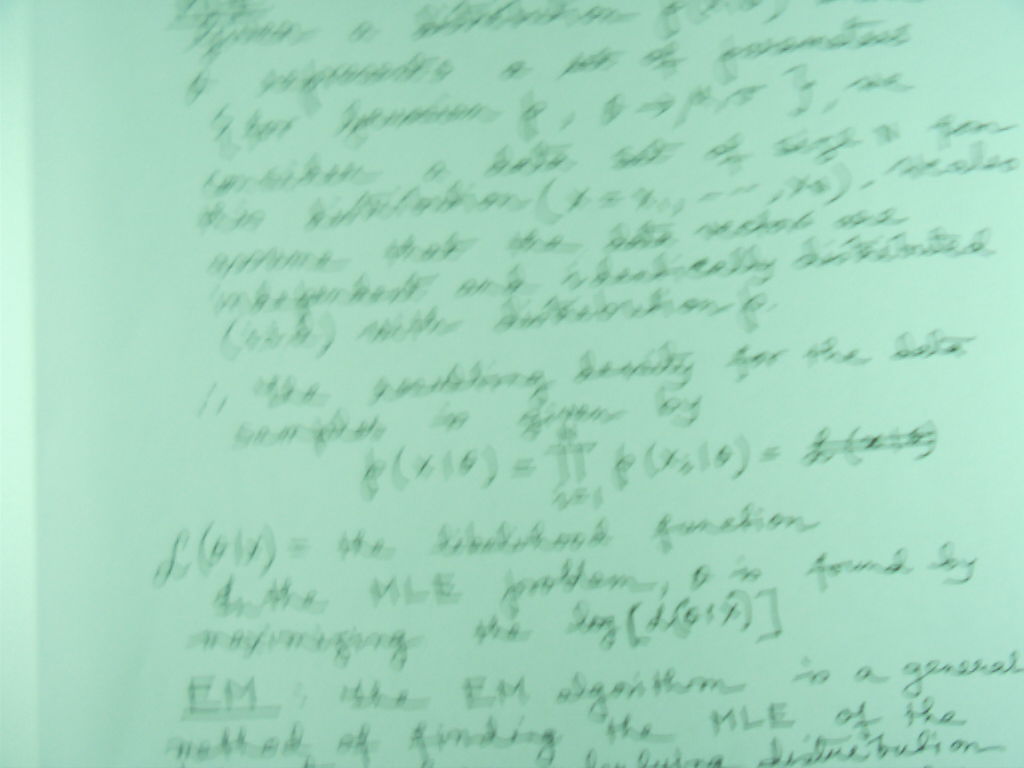 Given a distribution p(x|θ) 
θ represents a set of parameters
{for Gaussian p, θ → μ, σ}, we
consider a data set of size N from
this distribution (x = x₁, ---, xN).
assume that the data vectors are
independent and identically distributed
(iid) with distribution p.
∴ the resulting density for the data
samples is given by
p(x|θ) = ∏ᵢ₌₁ᴺ p(xᵢ|θ) =
L(θ|x) = the likelihood function
In the MLE problem, θ is found by
maximizing the log[L(θ|x)]
EM : the EM algorithm is a general
method of finding the MLE of the
underlying distribution